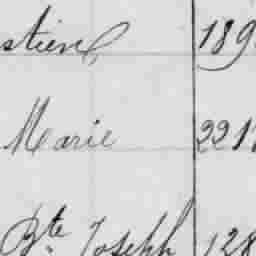 stien 189
Marie 221
Bte Joseph 128